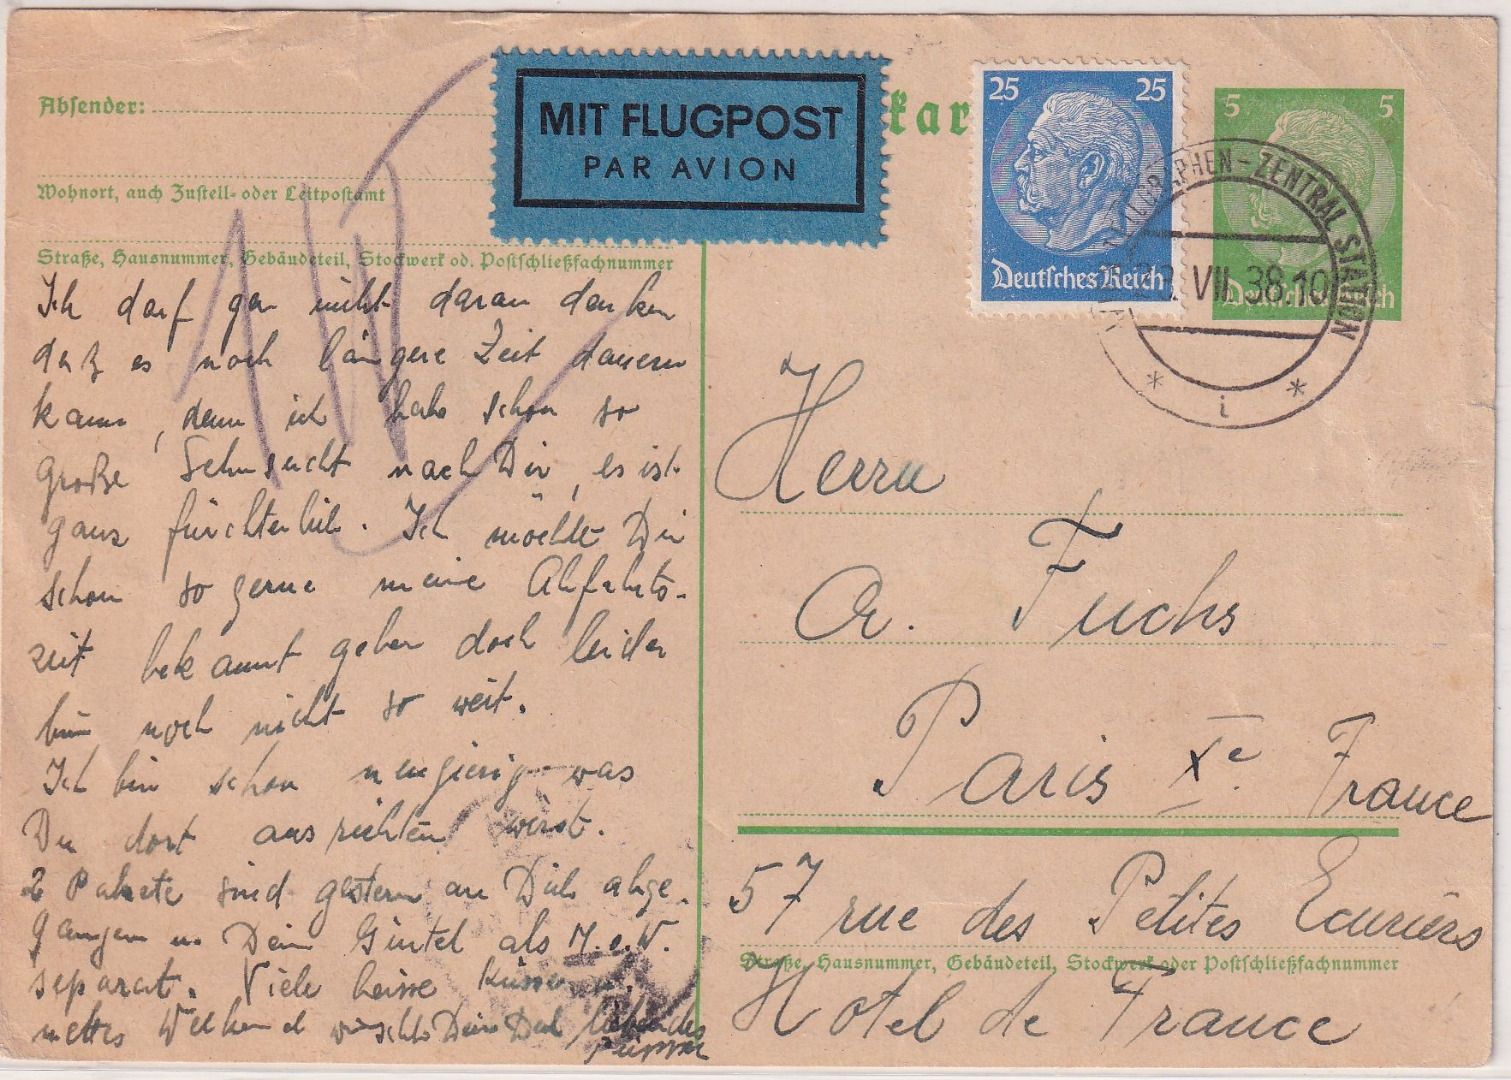 Absender:
Wohnort, auch Zustell- oder Leitpostamt
Straße, Hausnummer, Gebäudeteil, Stockwerk od. Postschließfachnummer
MIT FLUGPOST
PAR AVION
kar
25 25
Deutsches Reich
5 5
Deutsches Reich
ZENTRAL STATION
VII. 38.10
* i *
Ich darf gar nicht daran denken
daß es noch längere Zeit dauern
kann, denn ich habe schon so
große Sehnsucht nach Dir, es ist
ganz fürchterlich. Ich möchte Dir
schon so gerne meine Abfahrts-
zeit bekannt geben doch leider
bin noch nicht so weit.
Ich bin schon neugierig was
Du dort ausrichten wirst.
2 Pakete sind gestern an Dich abge-
gangen u. Dein Gürtel als M.o.W.
separat. Viele heisse Küsse u.
nettes Weekend wünscht Dein Dich liebendes
Herrn
A. Fuchs
Paris Xe. France
57 rue des Petites Ecuriers
Straße, Hausnummer, Gebäudeteil, Stockwerk oder Postschließfachnummer
Hotel de France